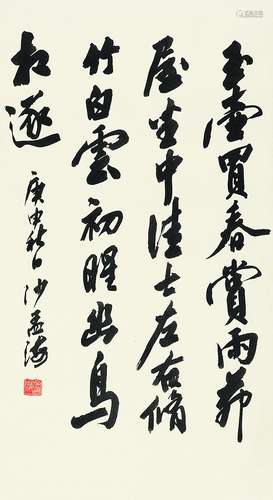 玉壶買春賞雨茆
屋坐中佳士左右脩
竹白雲初晴幽鳥
相逐
庚申秋日沙孟海